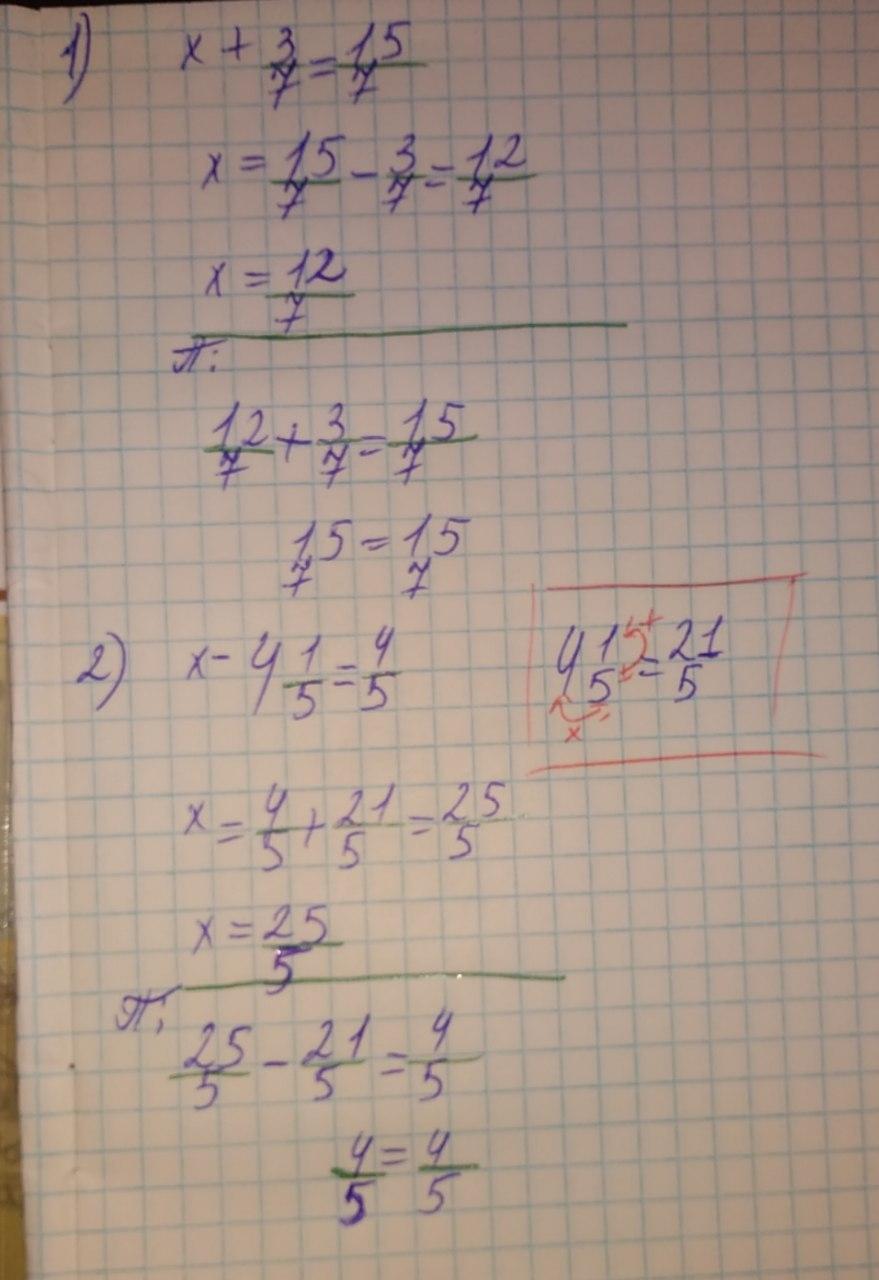 1) x + 3/7 = 15/7
x = 15/7 - 3/7 = 12/7
x = 12/7
П:
12/7 + 3/7 = 15/7
15/7 = 15/7
2) x - 4 1/5 = 4/5
4 1/5 = 21/5
+
x
x = 4/5 + 21/5 = 25/5
x = 25/5
П:
25/5 - 21/5 = 4/5
4/5 = 4/5